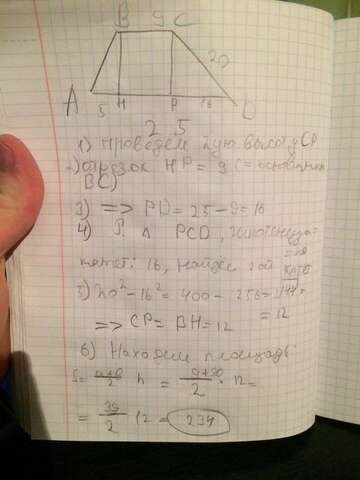 B 9 C
20
A 5 H P 16 D
25
1) проведём 2ую высоту CP
2) отрезок HP = 9 (= основанию
BC)
3) => PD = 25 - 9 = 16
4) PCD, гипотенуза
= 20
катет: 16, найдём 2ой катет
5) 20² - 16² = 400 - 256 = √144
= 12
=> CP = BH = 12
6) Находим площадь
S = a+b/2 h = 9+30/2 · 12 =
= 39/2 12 = 234